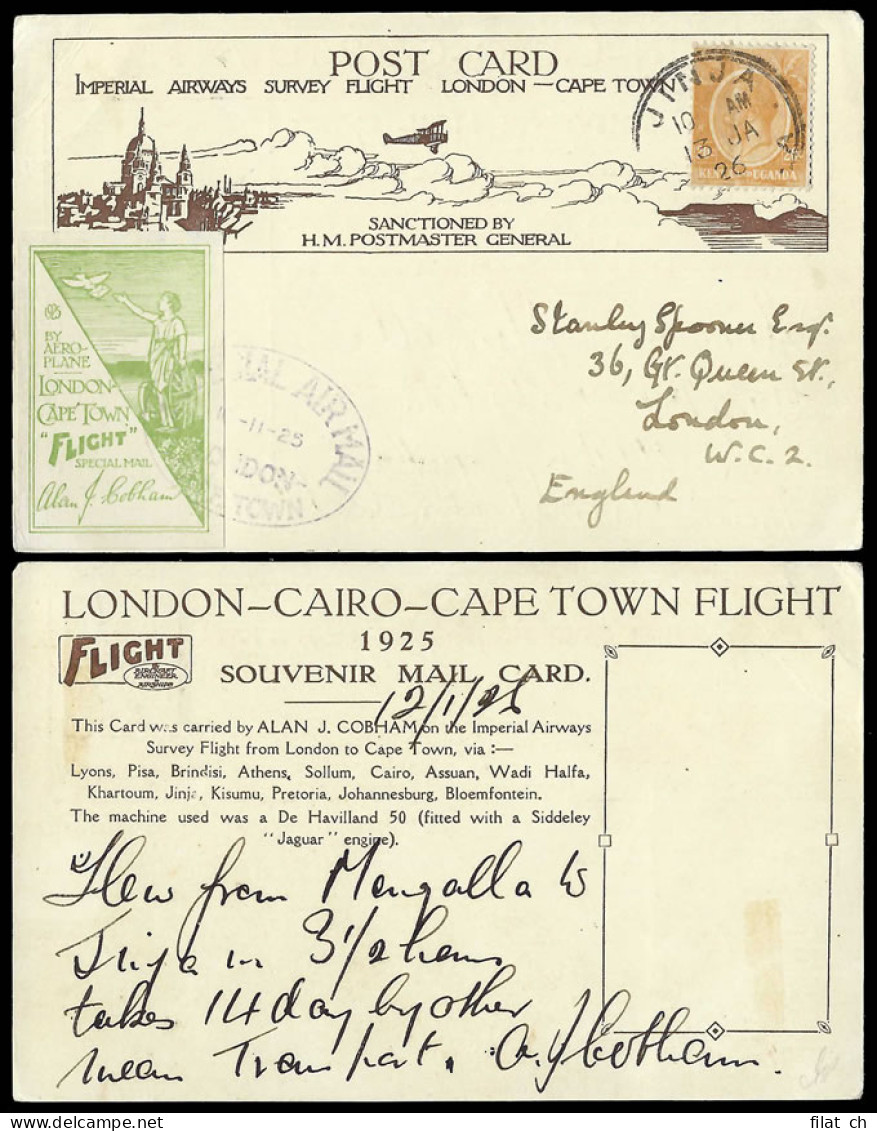 POST CARD
IMPERIAL AIRWAYS SURVEY FLIGHT LONDON—CAPE TOWN
SANCTIONED BY
H.M. POSTMASTER GENERAL
JINJA
10 AM
13 JA
26
KENYA UGANDA
BY
AERO-
PLANE
LONDON-
CAPE TOWN
"FLIGHT"
SPECIAL MAIL
Alan J. Cobham
AIR MAIL
-11-25
LONDON-
TOWN
Stanley Spooner Esq.
36, Gt. Queen St.,
London,
W.C.2.
England
LONDON–CAIRO–CAPE TOWN FLIGHT
1925
FLIGHT
AIRCRAFT
ENGINEER
& AIRSHIPS
SOUVENIR MAIL CARD.
12/1/26
This Card was carried by ALAN J. COBHAM on the Imperial Airways
Survey Flight from London to Cape Town, via :—
Lyons, Pisa, Brindisi, Athens, Sollum, Cairo, Assuan, Wadi Halfa,
Khartoum, Jinja, Kisumu, Pretoria, Johannesburg, Bloemfontein.
The machine used was a De Havilland 50 (fitted with a Siddeley
"Jaguar" engine).
Flew from Mongalla to
Jinja in 3 1/2 hours
takes 14 day by other
mean Transport. A J Cobham.
filat_ch